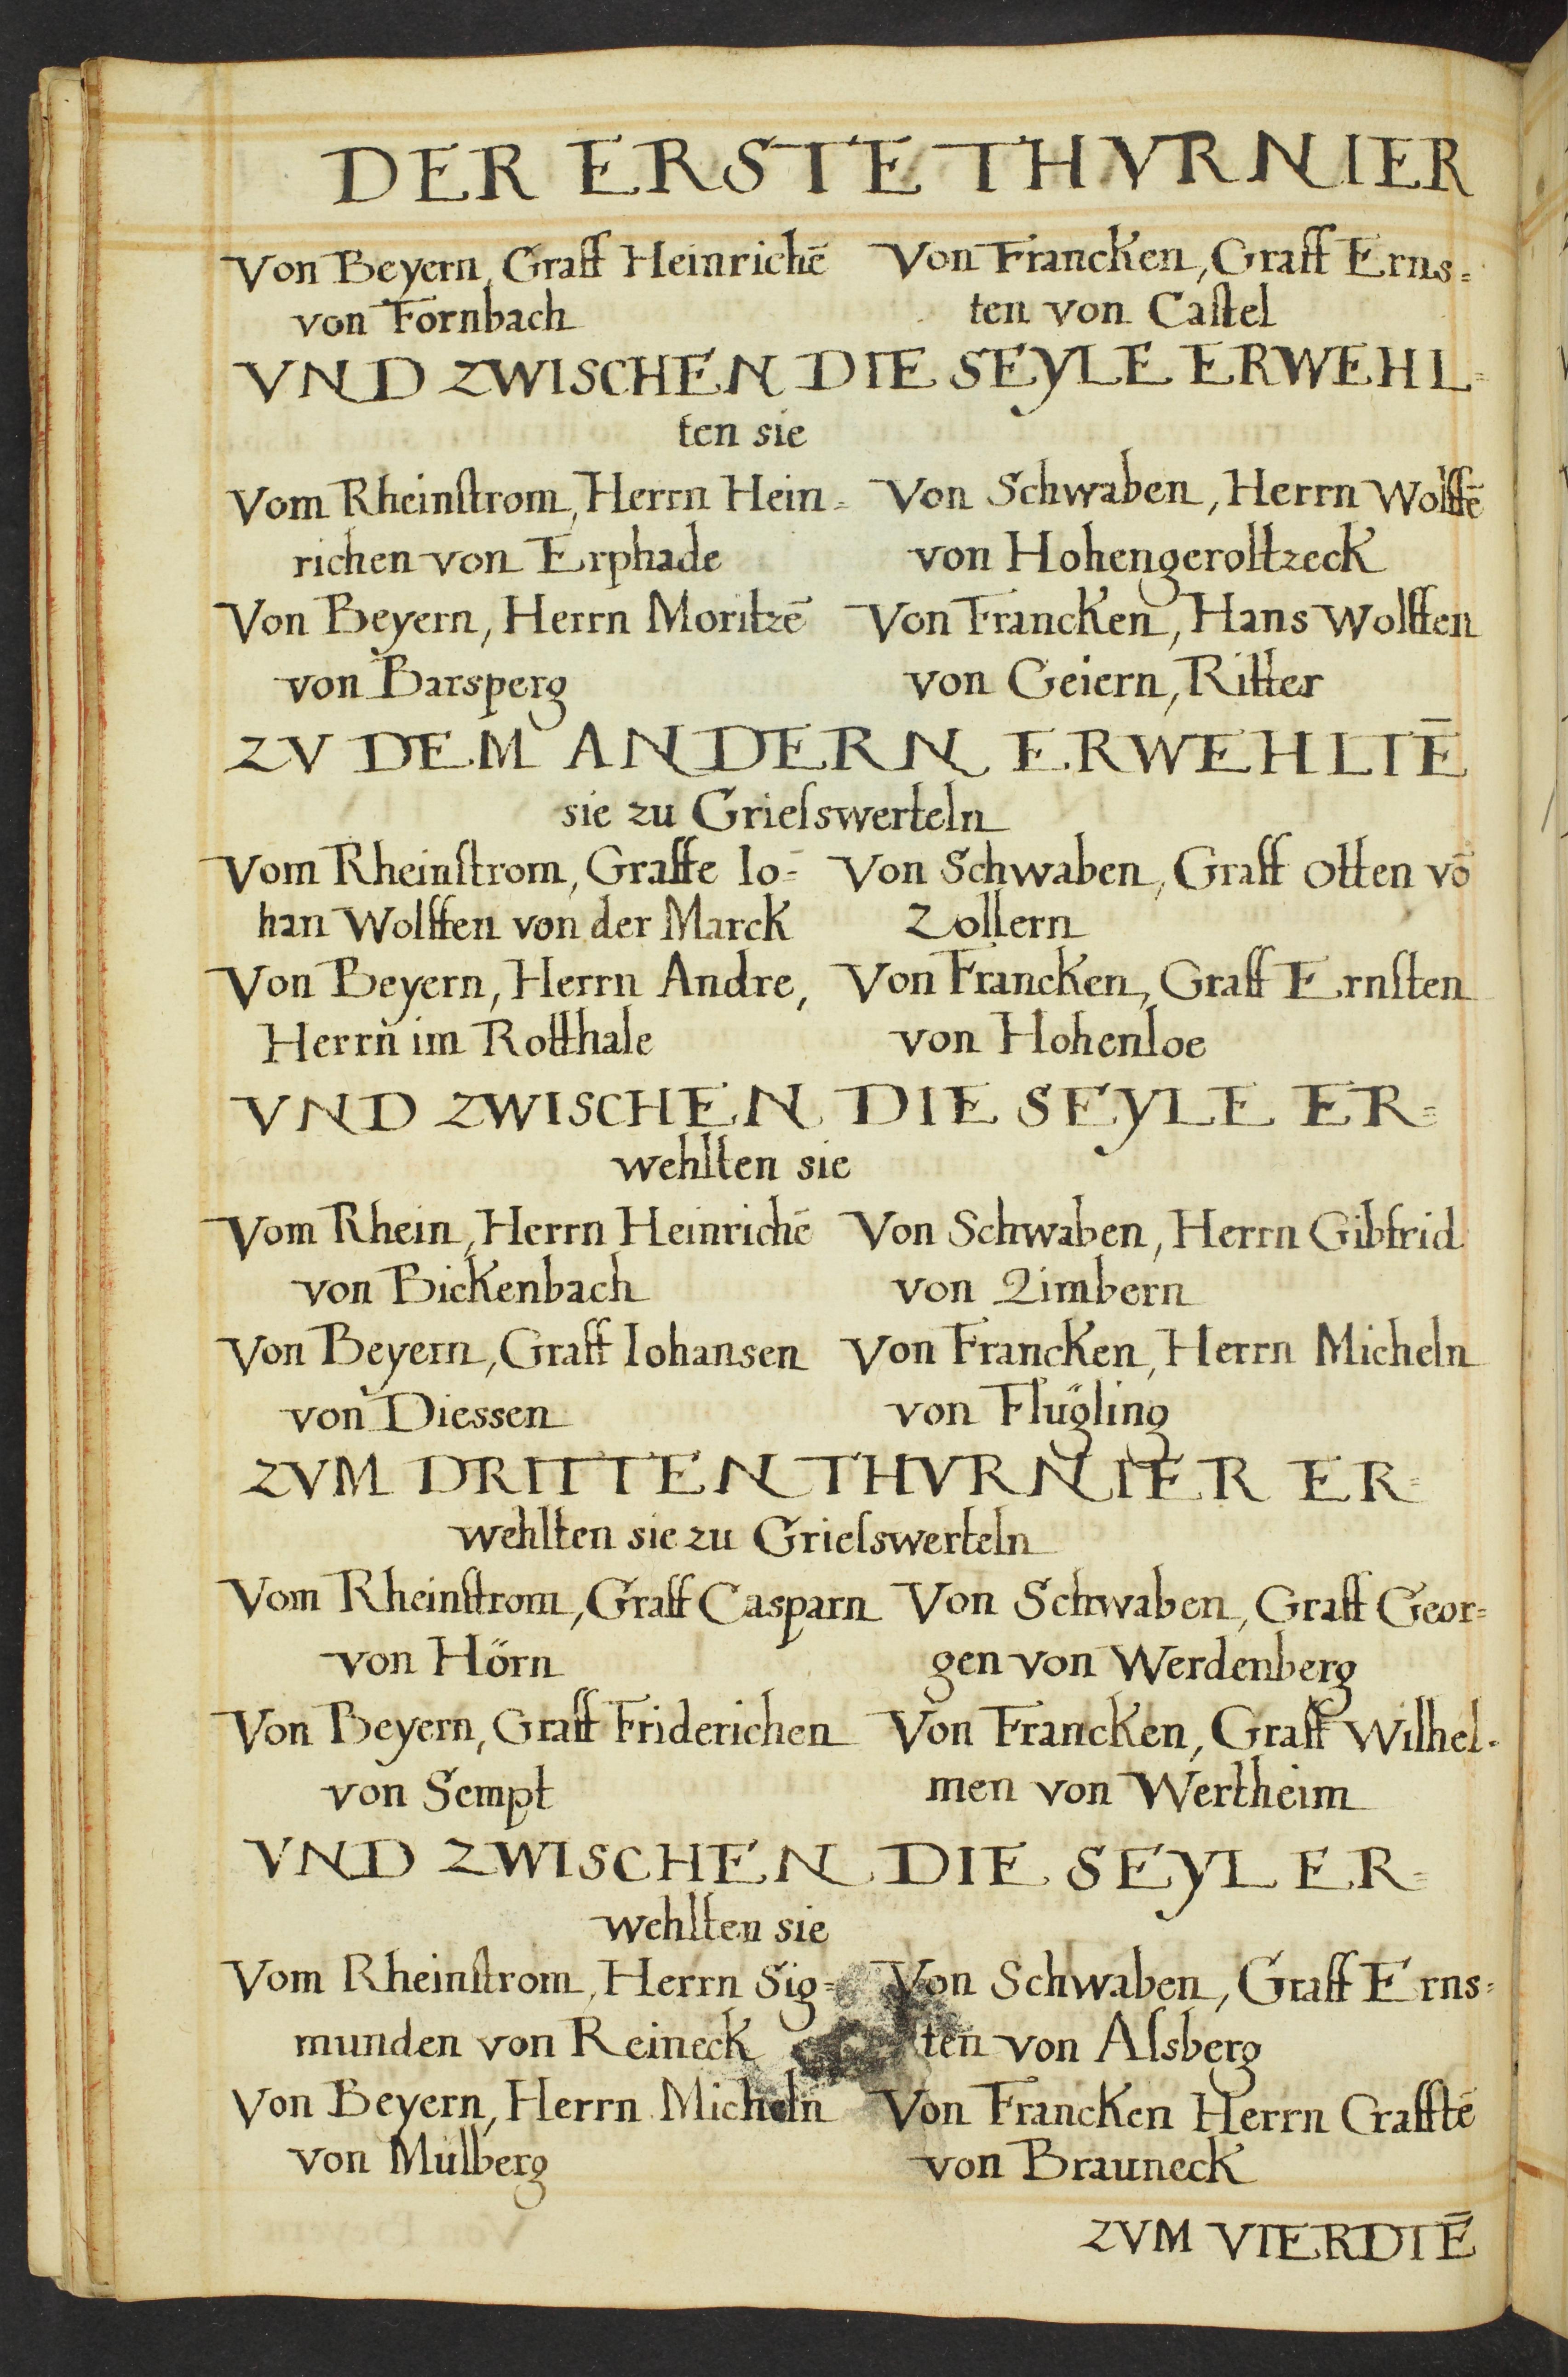 DER ERSTE THVRNIER
Von Beyern, Graff Heinrichē
von Fornbach
Von Francken, Graff Erns=
ten von Castel
VND ZWISCHEN DIE SEYLE ERWEHL=
ten sie
Vom Rheinſtrom, Herrn Hein=
richen von Erphade
Von Schwaben, Herrn Wolffē
von Hohengeroltzeck
Von Beyern, Herrn Moritzē
von Barsperg
Von Francken, Hans Wolffen
von Geiern, Ritter
ZV DEM ANDERN ERWEHLTĒ
sie zu Grieſswerteln
Vom Rheinſtrom, Graffe Io=
han Wolffen von der Marck
Von Schwaben, Graff Otten vō
Zollern
Von Beyern, Herrn Andre,
Herrn im Rotthale
Von Francken, Graff Ernſten
von Hohenloe
VND ZWISCHEN DIE SEYLE ER=
wehlten sie
Vom Rhein, Herrn Heinrichē
von Bickenbach
Von Schwaben, Herrn Gibfrid
von Zimbern
Von Beyern, Graff Iohansen
von Diessen
Von Francken, Herrn Micheln
von Flügling
ZVM DRITTEN THVRNIER ER=
wehlten sie zu Grieſswerteln
Vom Rheinſtrom, Graff Casparn
von Hörn
Von Schwaben, Graff Geor=
gen von Werdenberg
Von Beyern, Graff Friderichen
von Sempt
Von Francken, Graff Wilhel=
men von Wertheim
VND ZWISCHEN DIE SEYL ER=
wehlten sie
Vom Rheinſtrom, Herrn Sig=
munden von Reineck
Von Schwaben, Graff Erns=
ten von Alsberg
Von Beyern, Herrn Micheln
von Mülberg
Von Francken Herrn Crafftē
von Brauneck
ZVM VIERDTĒ